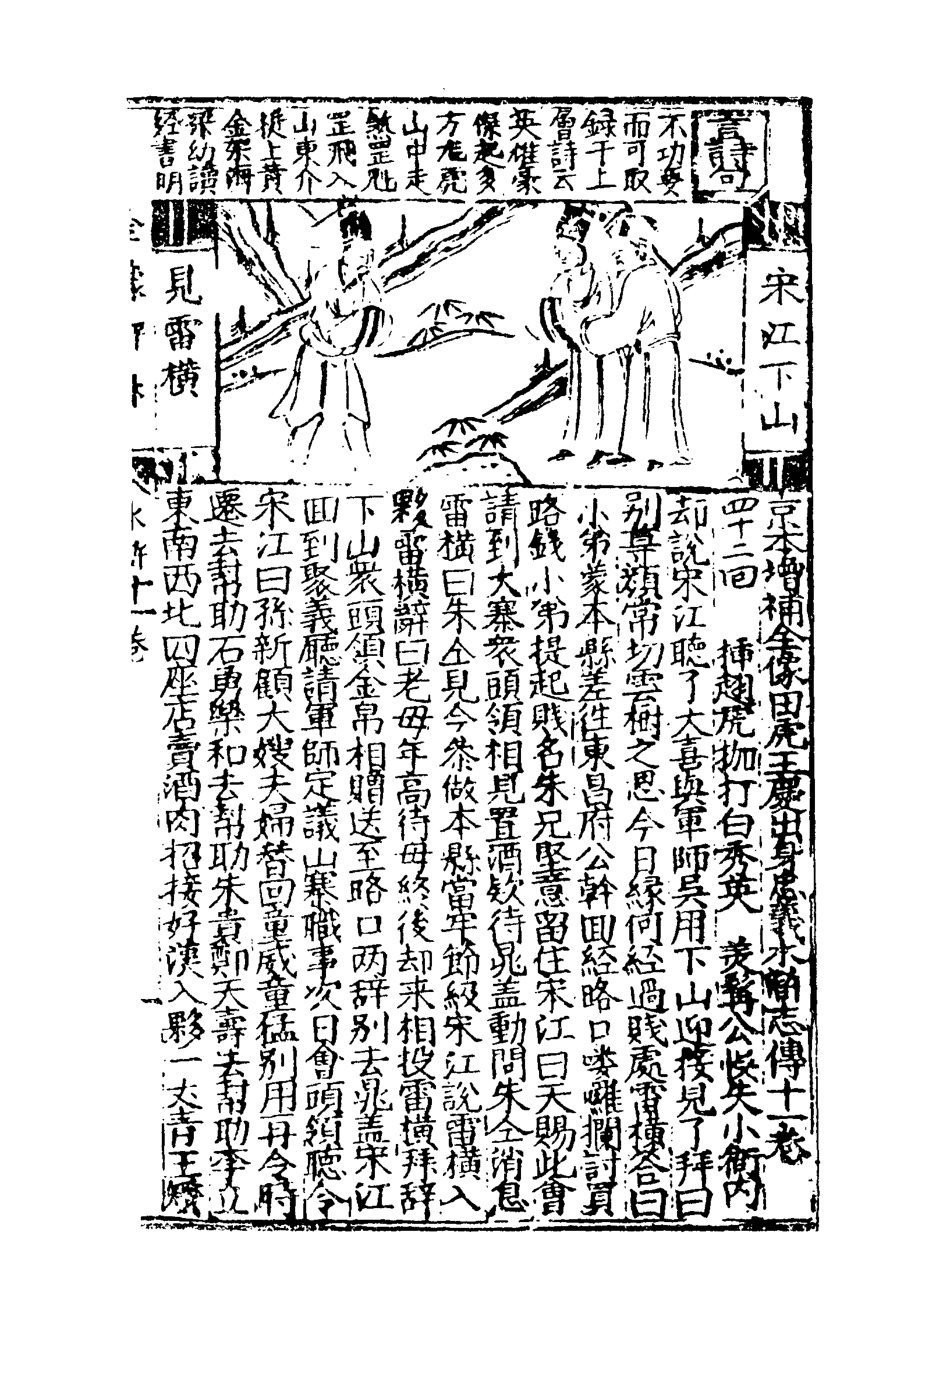 言詩句
不功勞
而可取
録于上
層詩云
英雄豪
傑起多
方左虎
山中走
煞罡飛
罡飛入
山東介
挺上黄
金架海
梁幼讀
經書明
宋江下山
見雷橫
京本增補全像田虎王慶出身忠義水滸志傳十一卷
四十二回 插翅虎枷打白秀英 美髯公悞失小衙內
却說宋江聽了大喜與軍師吳用下山迎接見了拜曰
别尊顏常切雲樹之思今日緣何經過賤處雷橫答曰
小弟蒙本縣差往東昌府公幹囬經路口嘍囉攔討買
路錢小弟提起賤名朱兄堅意留住宋江曰天賜此會
請到大寨衆頭領相見置酒欵待晁盖動問朱仝消息
雷橫曰朱仝見今叅做本縣當牢節級宋江說雷橫入
夥雷橫辭曰老母年高待母終後却来相投雷橫拜辞
下山衆頭領金帛相贈送至路口两辞别去晁盖宋江
囬到聚義廳請軍師定議山寨職事次日會頭領聽令
宋江曰孫新顧大嫂夫婦替回童威童猛别用再令時
遷去幇助石勇樂和去幇助朱貴鄭天壽去幇助李立
東南西北四座店賣酒肉招接好漢入夥一丈青王矮
水滸十一卷